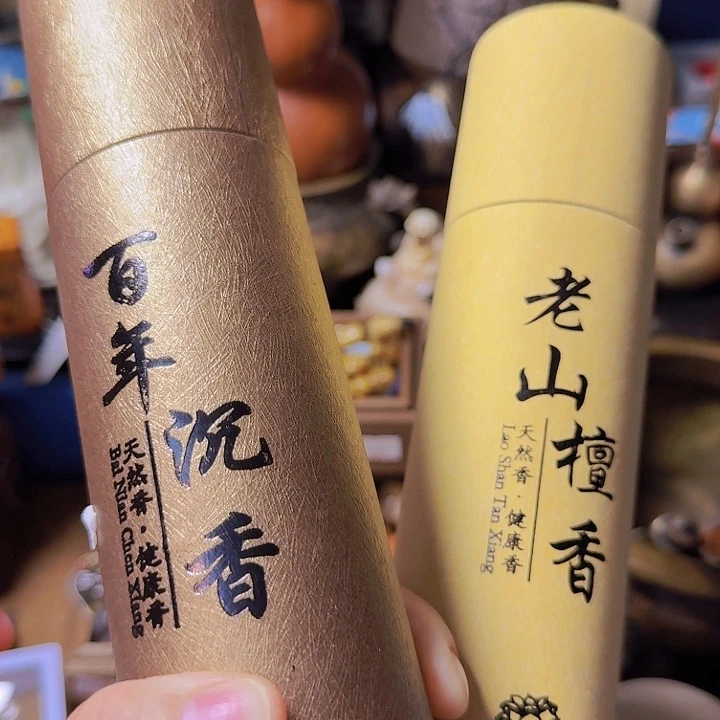 百年沉香
天然香·健康香
老山檀香
天然香·健康香
Lao Shan Tan Xiang